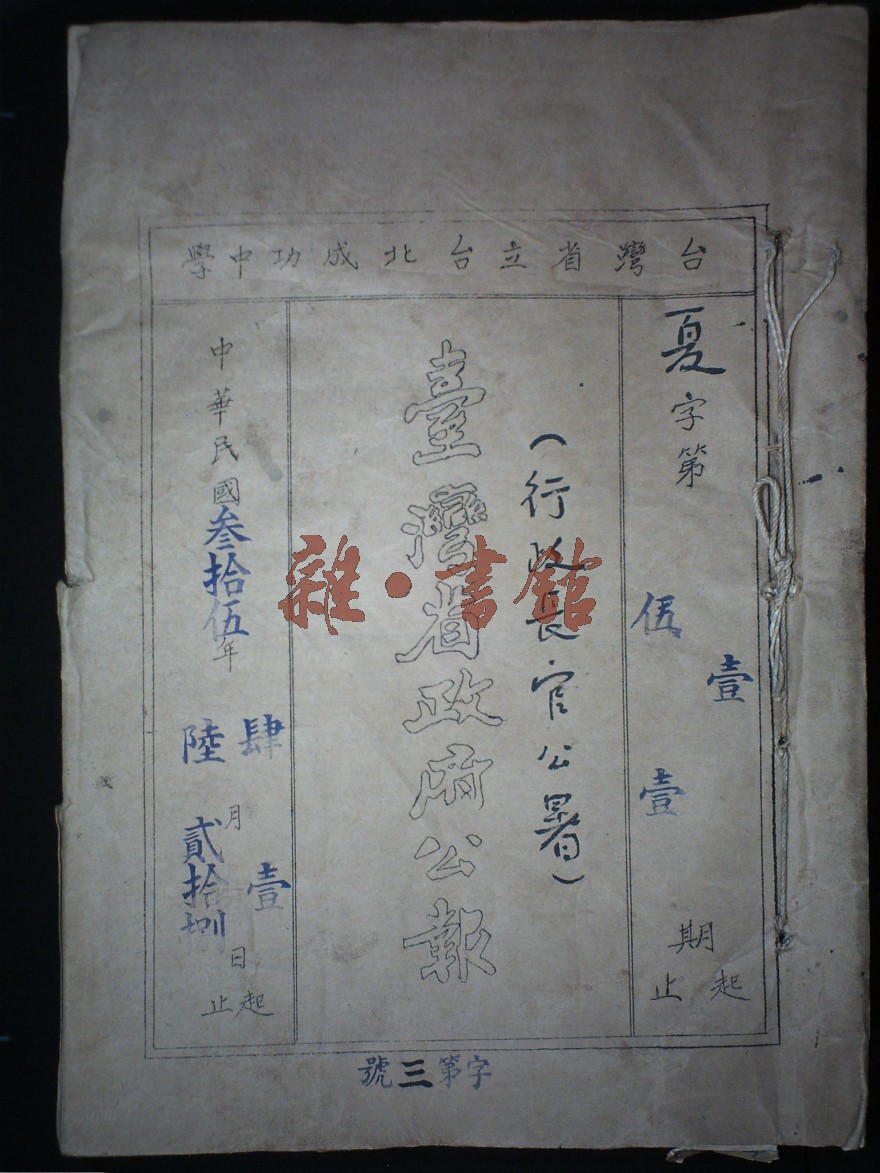 台灣省立台北成功中學
夏字第
壹
起
期
伍壹
止
（行政長官公署）
臺灣省政府公報
中華民國叁拾伍年
肆 壹 起
月 日
陸 貳拾捌 止
字第三號
雜·書館